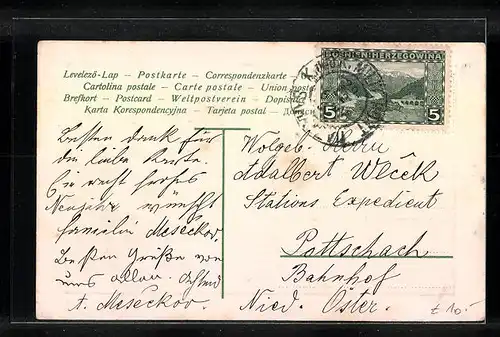 Levelező-Lap – Postkarte – Correspondenzkarte –
Cartolina postale – Carte postale – Union post
Brefkort – Postcard – Weltpostverein – Dopisn
Karta Korespondencyjna – Tarjeta postal –
HERZEGOWINA
5 5
Besten Dank für
die liebe Karte.
Ein recht frohes
Neujahr wünscht
Familie Meseckov.
Besten Grüße von
uns allen.
A. Meseckov.
Wolgeb. Herrn
Adalbert Wlček
Stations Expedient
Pottschach
Bahnhof
Nied. Öster.
£ 10.-